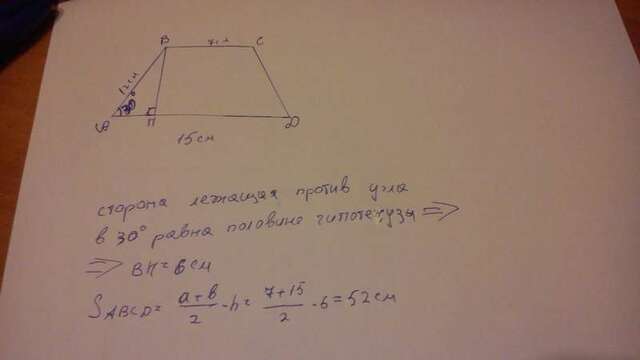 B 7см C
12см
30°
A П D
15см
сторона лежащая против угла
в 30° равна половине гипотенузы =>
=> BH = 6 см
S ABCD = a+b/2 · h = 7+15/2 · 6 = 52 см